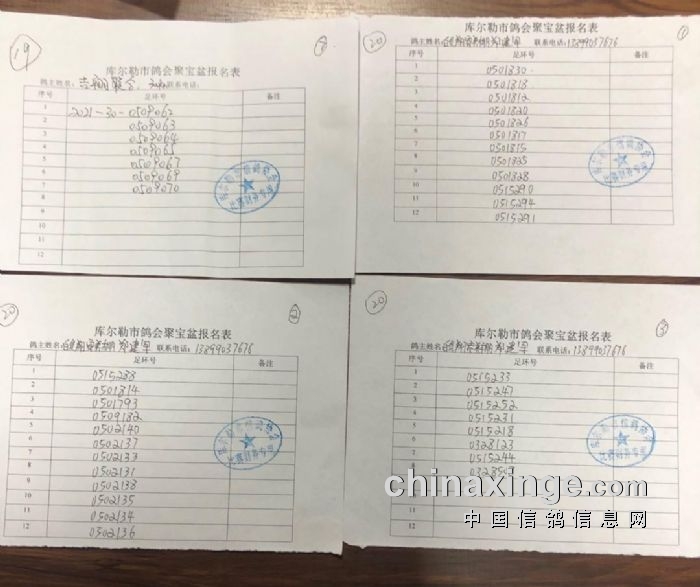 19
库尔勒市鸽会聚宝盆报名表
鸽主姓名: 联系电话:
序号 足环号 备注
1 2021-30-0509062
2 0509063
3 0509064
4 0509065
5 0509067
6 0509069
7 0509070
8
9
10
11
12
20 ①
库尔勒市鸽会聚宝盆报名表
鸽主姓名: 联系电话:13899037676
序号 足环号 备注
1 0501830
2 0501818
3 0501812
4 0501820
5 0501826
6 0501817
7 0501815
8 0501825
9 0501828
10 0515290
11 0515294
12 0515291
20 ②
库尔勒市鸽会聚宝盆报名表
鸽主姓名: 联系电话:13899037676
序号 足环号 备注
1 0515238
2 0501814
3 0501793
4 0509182
5 0502140
6 0502137
7 0502133
8 0502131
9 0502138
10 0502135
11 0502134
12 0502136
20 ③
库尔勒市鸽会聚宝盆报名表
鸽主姓名: 联系电话:13899037676
序号 足环号 备注
1 0515233
2 0515247
3 0515252
4 0515231
5 0515218
6 0328123
7 0515244
12
chinaxinge.com
中国信鸽信息网